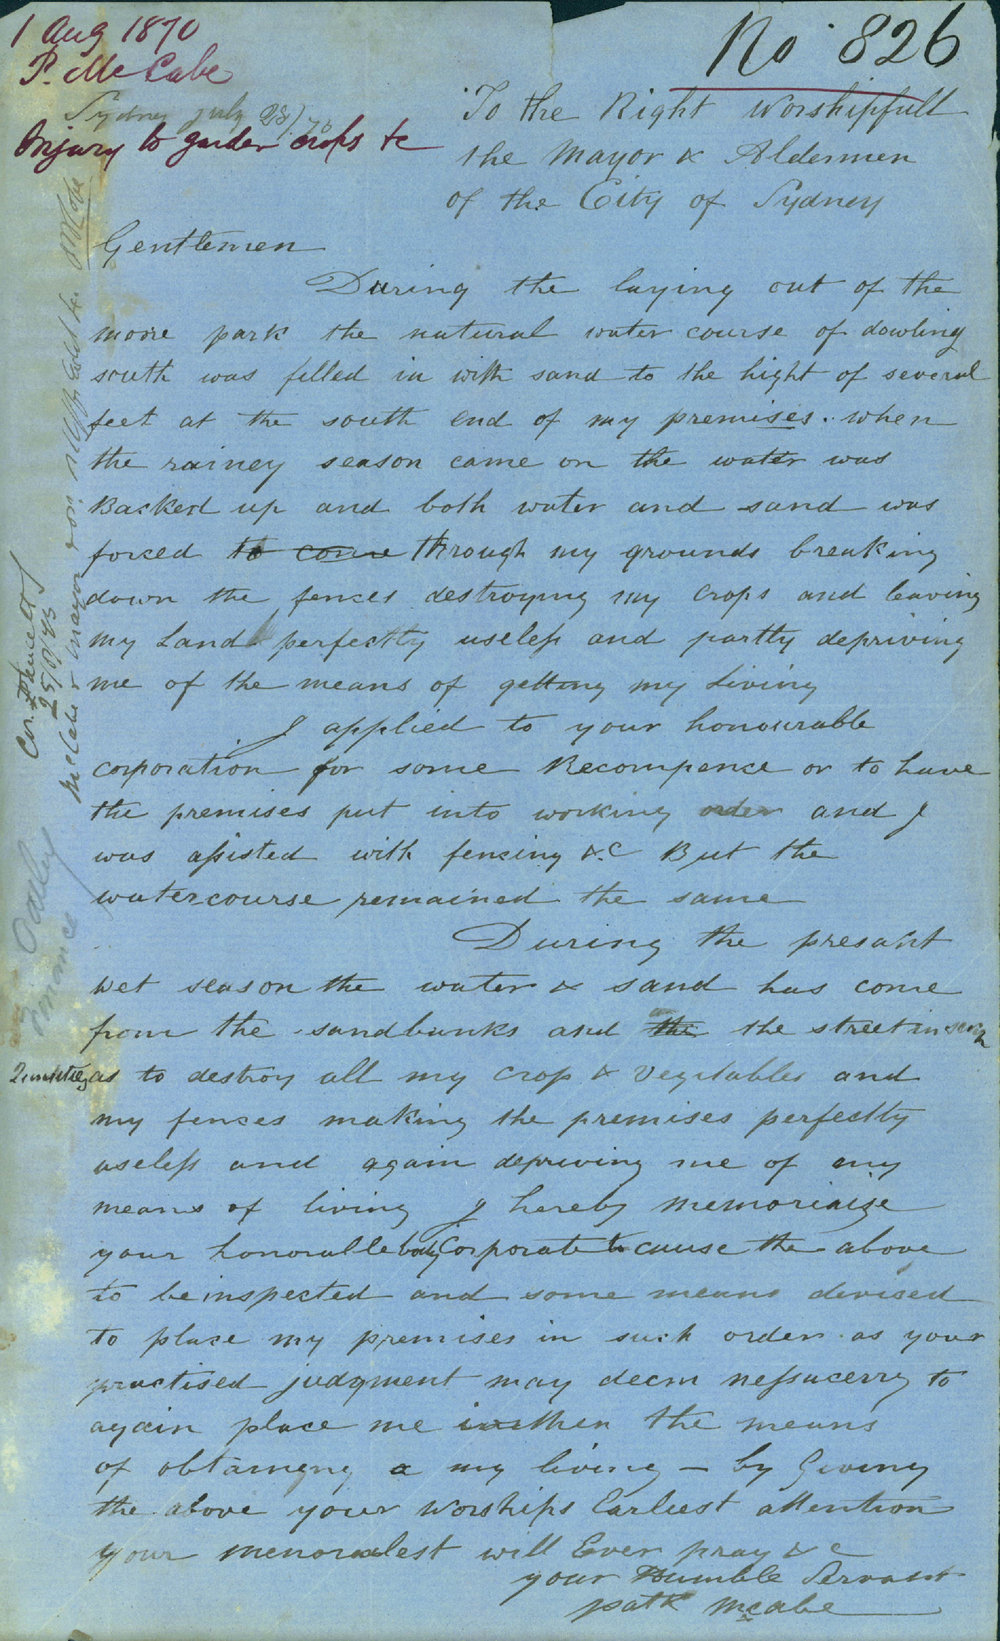 1 Aug 1870
P. McCabe
Sydney july 28/70
Injury to garden crops &c
No 826
To the Right Worshipfull
the Mayor & Aldermen
of the City of Sydney
Gentlemen
During the laying out of the
moore park the natural water course of dowling
south was filled in with sand to the hight of several
feet at the south end of my premises. when
the rainey season came on the water was
Backed up and both water and sand was
forced to come through my grounds breaking
down the fences destroying my crops and leaving
my Land perfectly useless and partly depriving
me of the means of getting my living
I applied to your honourable
corporation for some Recompence or to have
the premises put into working order and I
was assisted with fencing &c But the
watercourse remained the same
During the presant
wet season the water & sand has come
from the sandbanks and the the street in such
quantity as to destroy all my crop & vegitables and
my fences making the premises perfectly
useless and again depriving me of my
means of living I hereby memorialize
your honorable body Corporate to cause the above
to be inspected and some means devised
to place my premises in such order as your
practised judgment may deem nessacerry to
again place me in then the means
of obtaineng a my living — by Giveing
the above your Worships Earliest attention
your memorialest will Ever pray &c
your Humble Servant
patk McCabe
McCabe & Mayor
25/0/43
Finance